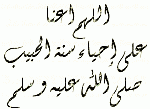 اللهم اعنا
على إحياء سنة الحبيب
صلى الله عليه وسلم